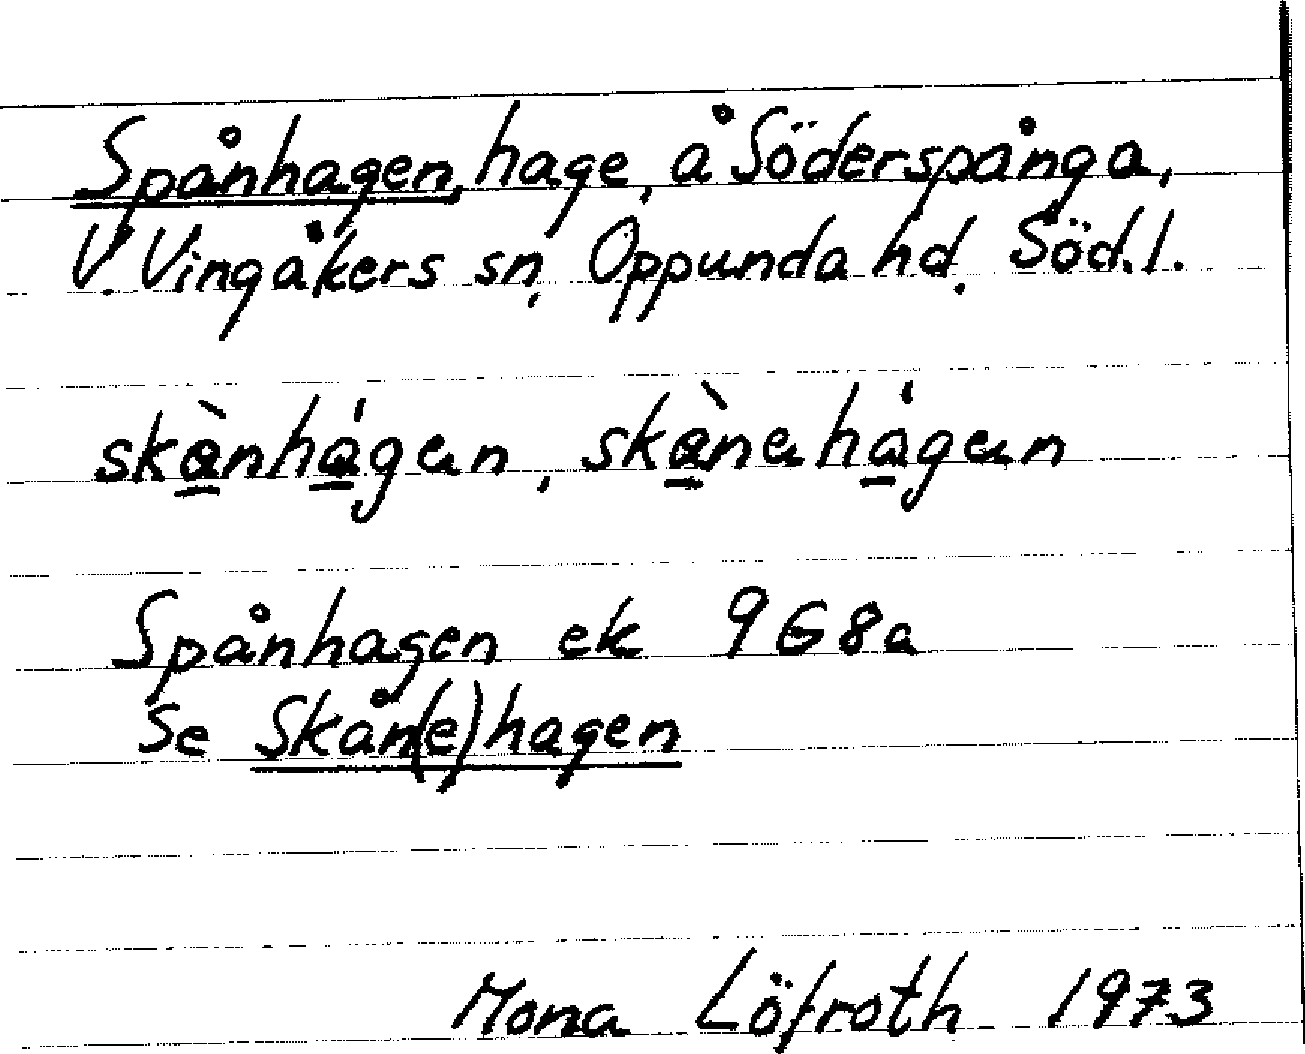 Spånhagen, hage, å Söderspånga,
V. Vingåkers sn, Oppunda hd. Söd.l.
skànhágen, skànehágen
Spånhagen ek 9G8a
Se Skån(e)hagen
Mona Löfroth 1973